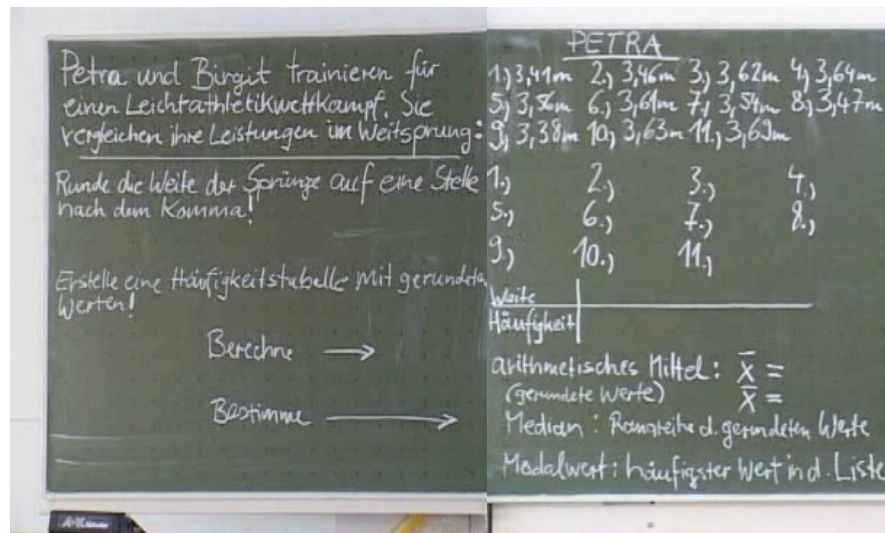 Petra und Birgit trainieren für
einen Leichtathletikwettkampf. Sie
vergleichen ihre Leistungen im Weitsprung:
Runde die Weite der Sprünge auf eine Stelle
nach dem Komma!
Erstelle eine Häufigkeitstabelle mit gerundeten
Werten!
Berechne →
Bestimme →
PETRA
1.) 3,41m 2.) 3,46m 3.) 3,62m 4.) 3,64m
5.) 3,56m 6.) 3,61m 7.) 3,54m 8.) 3,47m
9.) 3,38m 10.) 3,63m 11.) 3,69m
1.) 2.) 3.) 4.)
5.) 6.) 7.) 8.)
9.) 10.) 11.)
Weite
Häufigkeit
arithmetisches Mittel: x̄ =
(gerundete Werte) x̄ =
Median: Rangreihe d. gerundeten Werte
Modalwert: häufigster Wert in d. Liste